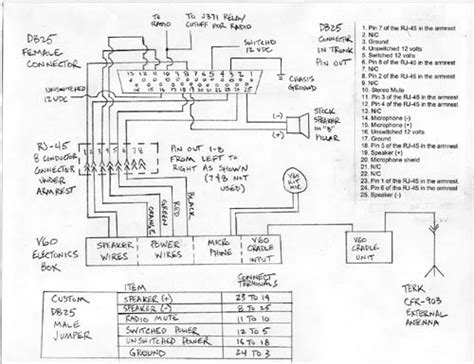 TO RADIO
TO J371 RELAY/
CUTOFF FOR RADIO
SWITCHED
12 VDC
DB25
FEMALE
CONNECTOR
DB25
CONNECTOR
IN TRUNK
PIN OUT
1. Pin 7 of the RJ-45 in the armrest
2. N/C
3. Ground
4. Unswitched 12 volts
5. Switched 12 volts
6. N/C
7. N/C
8. Pin 8 of the RJ-45 in the armrest
9. N/C
10. Stereo Mute
11. N/C
12. N/C
13. N/C
14. Microphone (-)
15. Microphone (+)
16. Unswitched 12 volts
17. N/C
18. Pin 5 of the RJ-45 in the armrest
19. Speaker (+)
20. Microphone shield
21. N/C
22. Pin 4 of the RJ-45 in the armrest
23. Pin 1 of the RJ-45 in the armrest
24. Pin 6 of the RJ-45 in the armrest
25. Speaker (-)
UNSWITCHED
12 VDC
CHASIS
GROUND
STOCK
SPEAKER
IN "B"
PILLAR
RJ-45
8 CONDUCTOR
CONNECTOR
UNDER
ARMREST
1 2 3 4 5 6 7 8
PIN OUT 1-8
FROM LEFT TO
RIGHT AS SHOWN
(7+8 NOT
USED)
ORANGE
GREEN
RED
V60
MIC
V60
ELECTIONICS
BOX
SPEAKER
WIRES
POWER
WIRES
MICRO
PHONE
V60
CRADLE
INPUT
V60
CRADLE
UNIT
TERK
CFR-903
EXTERNAL
ANTENNA
CUSTOM
DB25
MALE
JUMPER
ITEM
CONNECT
TERMINALS
SPEAKER (+) 23 TO 19
SPEAKER (-) 8 TO 25
RADIO MUTE 1 TO 10
SWITCHED POWER 12 TO 5
UNSWITCHED POWER 16 TO 18
GROUND 24 TO 3